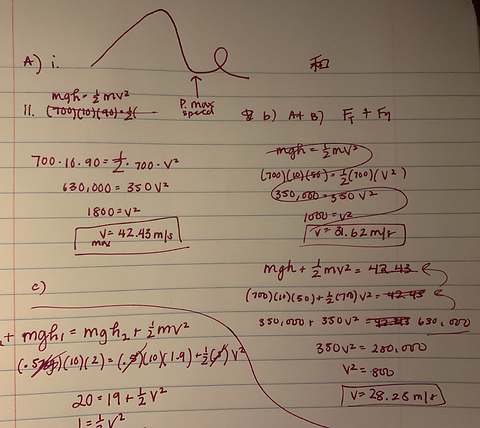 A) i.
和
mgh = ½mv²
P. max speed
ii. (700)(10)(90) = ½(
b) A+B)
700·10·90 = ½·700·v²
630,000 = 350v²
1800 = v²
v = 42.43 m/s
max
mgh = ½mv²
(700)(10)(50) = ½(700)(v²)
350,000 = 350v²
1000 = v²
v = 31.62 m/s
mgh + ½mv² = 42.43
(700)(10)(50) + ½(700)v² = 42.43
350,000 + 350v² = 42.43 630,000
350v² = 280,000
v² = 800
v = 28.28 m/s
c)
+ mgh₁ = mgh₂ + ½mv²
(10)(2) = (.5)(10)(1.9) + ½(.5)v²
20 = 19 + ½v²
1 = ½v²